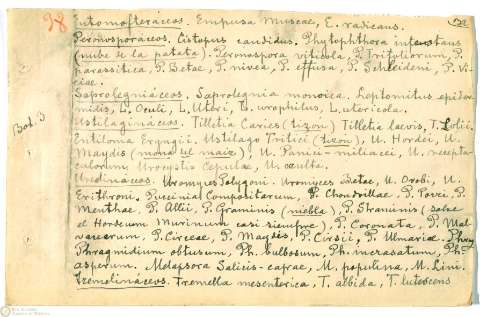 98
122
Entomofteráceos. Empusa Muscae, E. radicans.
Peronosporáceos. Cistopus candidus, Phytophthora infestans
(nube de la patata). Peronospora viticola, P. Trifoliorum, P.
parasitica, P. Betae, P. nivea, P. effusa, P. Schleideni, P. Vi-
ciae.
Saprolegniáceos. Saprolegnia monoica. Leptomitus epider-
midis, L. Oculi, L. Uteri, L. uraphilus, L. utericola.
Bot. 3
Ustilagináceos. Tilletia Caries (tizón) Tilletia laevis, T. Lolii.
Entiloma Eryngii. Ustilago Tritici (tizón), U. Hordei, U.
Maydis (mona del maiz), U. Panici-miliacei, U. recepta-
culorum Urocystis Cepulae, U. occulta.
Uredináceos. Uromyces Polygoni. Uromyces Betae, U. Orobi, U.
Erithroni. Puccinia Compositarum, P. Chondrillae, P. Porri, P.
Menthae, P. Allii, P. Graminis (niebla), P. Straminis (
et Hordeum Murinum casi siempre), P. Coronata, P. Mal-
vacearum, P. Circeae, P. Maydis, P. Cirsii, P. Ulmariae.
Phragmidium obtusum, Ph. bulbosum, Ph. incrassatum, Ph.
asperum. Melapsora Salicis-capraeae, M. populina, M. Lini.
Tremelináceos. Tremella mesenterica, T. albida, T. lutescens